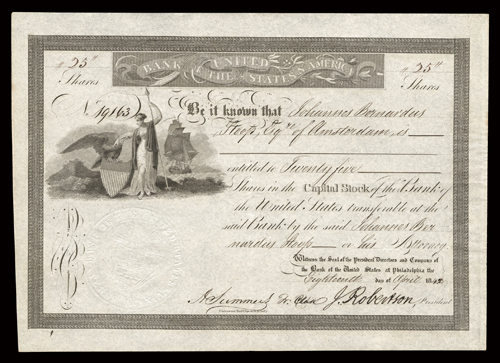 25
Shares
BANK OF THE UNITED STATES OF AMERICA
25
Shares
No. 19163
Be it known that Johannes Bernardus
Stoop, Esqr. of Amsterdam, is
entitled to Twenty five
Shares in the Capital Stock of the Bank of
the United States transferable at the
said Bank by the said Johannes Ber
nardus Stoop or his Attorney
Witness the Seal of the President Directors and Company of
the Bank of the United States at Philadelphia the
Eighteenth day of April
Cash J. Robertson, President